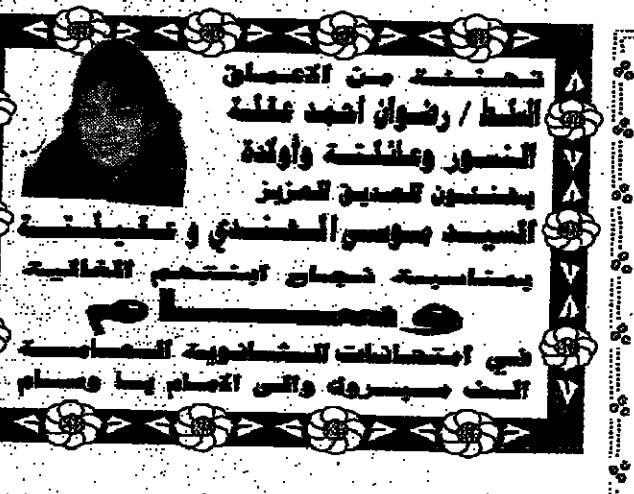 تهنئة من الاعماق
الملط / رضوان احمد عقلة
النسور وعائلته وأولاده
يهنئون الصديق العزيز
السيد موسى الشندي وعقيلته
بمناسبة نجاح ابنتهم الغالية
وسام
في امتحانات الثانوية العامة
الف مبروك والى الامام يا وسام